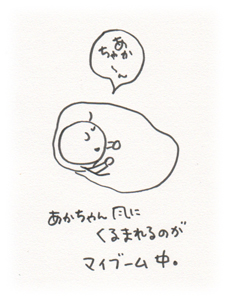 あかちゃ〜ん
あかちゃん風に
くるまれるのが
マイブーム中。